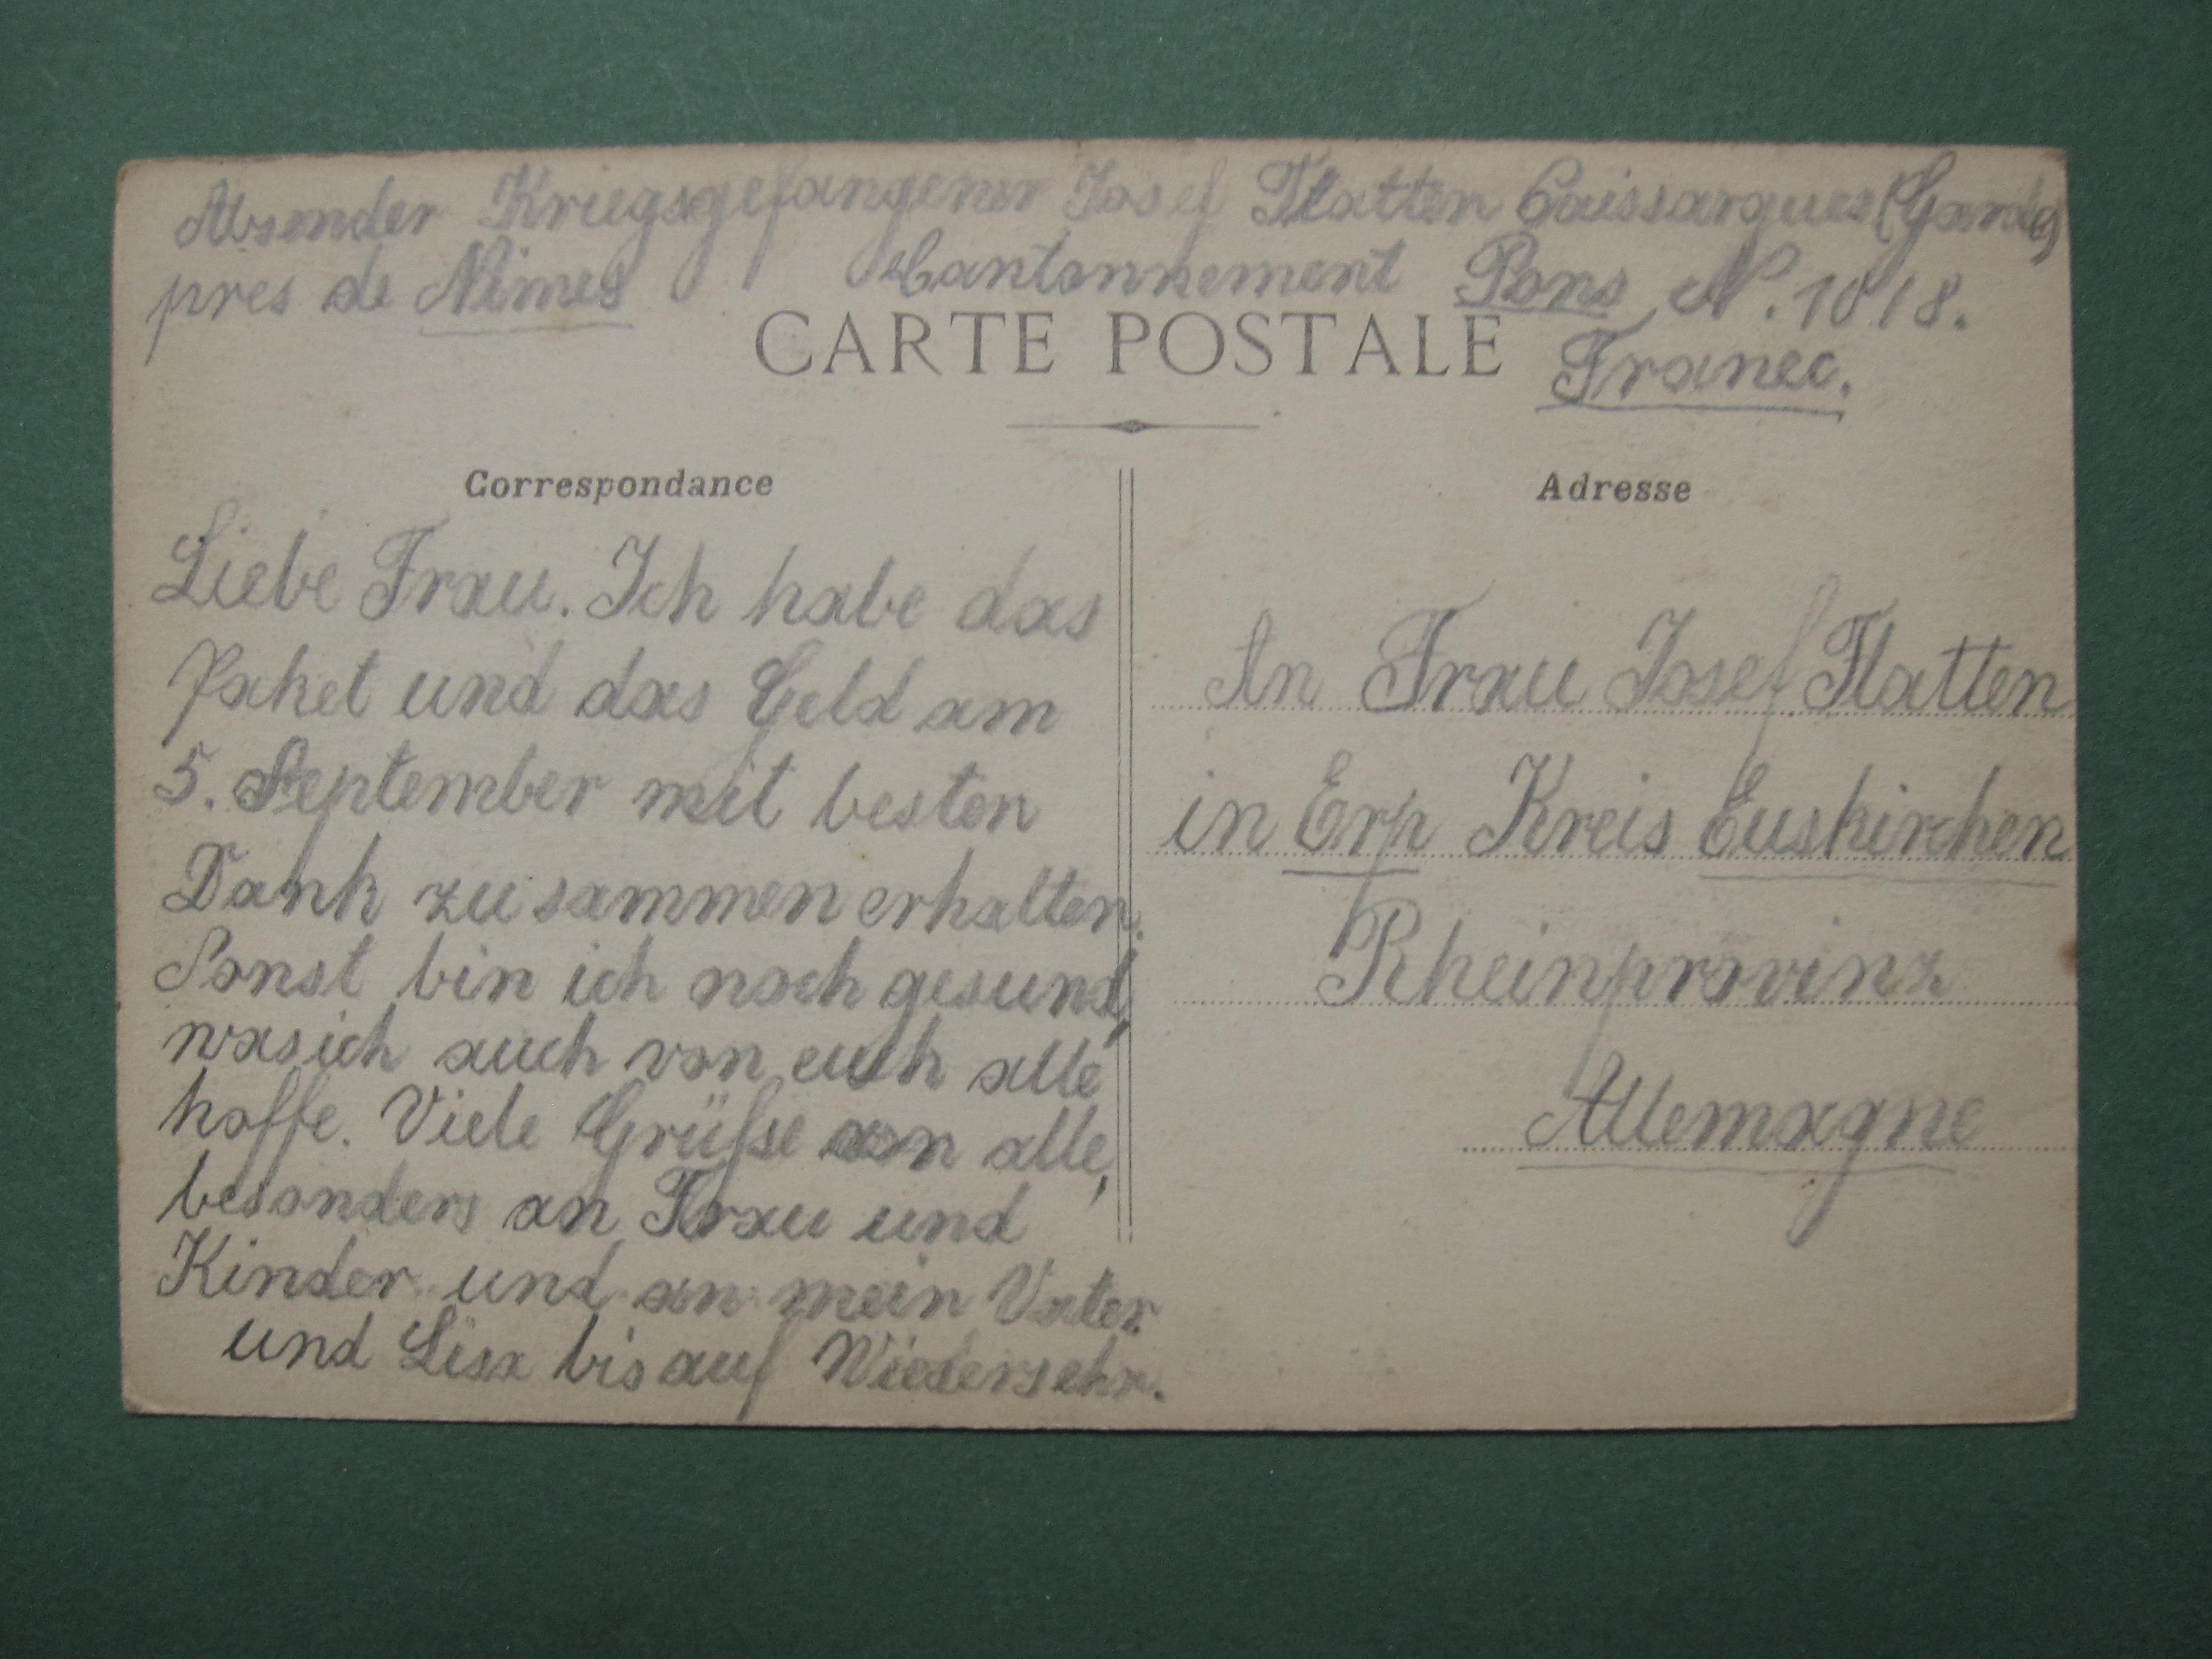 Absender Kriegsgefangener Josef Flatten Caissargues (Garde)
pres de Nimes Cantonnement Pons N. 1018.
CARTE POSTALE
Franec.
Correspondance
Liebe Frau. Ich habe das
Paket und das Geld am
5. September mit besten
Dank zusammen erhalten.
Sonst bin ich noch gesund,
was ich auch von euch alle
hoffe. Viele Grüße an alle,
besonders an Frau und
Kinder und an mein Vater
und Lisa bis auf Wiedersehn.
Adresse
An Frau Josef Flatten
in Erp Kreis Euskirchen
Rheinprovinz
Allemagne